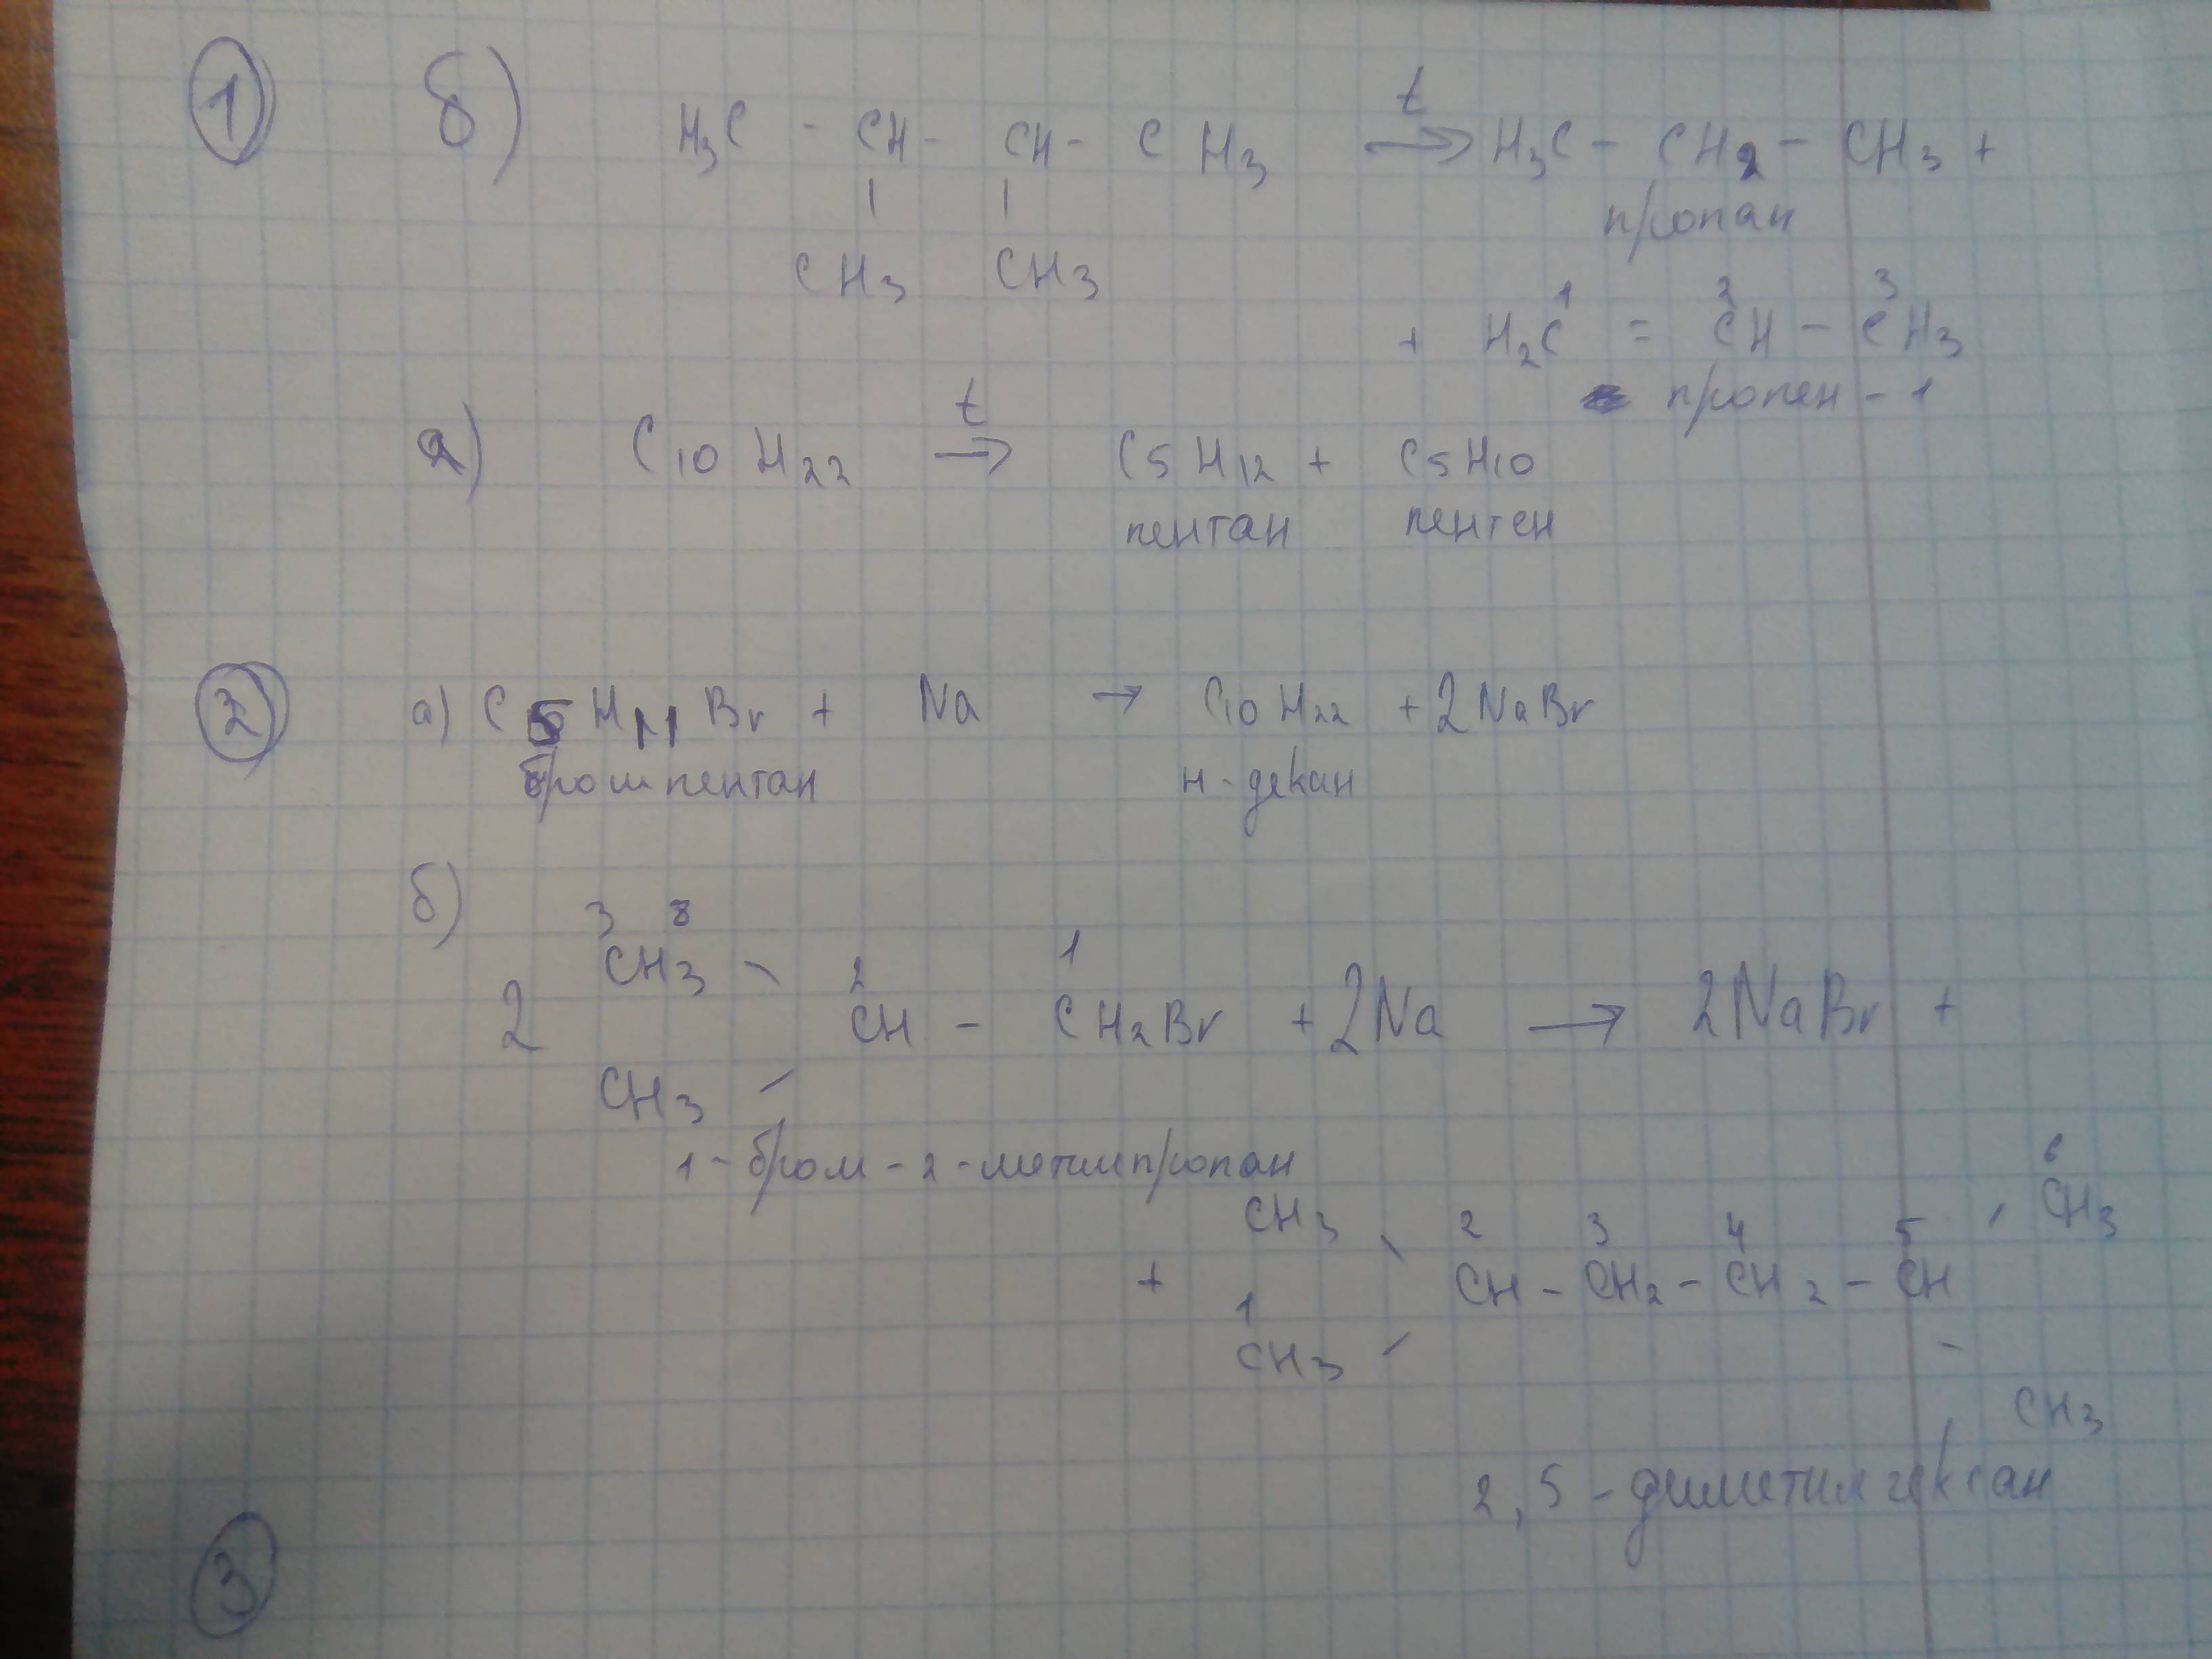 1 б) H₃C - CH - CH - CH₃ →t H₃C - CH₂ - CH₃ +
| |
пропан
CH₃ CH₃
1 2 3
+ H₂C = CH - CH₃
пропен - 1
а) C₁₀H₂₂ →t C₅H₁₂ + C₅H₁₀
пентан пентен
2 а) C₅H₁₁Br + Na → C₁₀H₂₂ + 2NaBr
бромпентан н-декан
б)
3
CH₃ \ 2 1
2 CH - CH₂Br + 2Na → 2NaBr +
CH₃ /
1-бром-2-метилпропан
6
CH₃ \ 2 3 4 5 / CH₃
+ CH - CH₂ - CH₂ - CH
1
CH₃ / -
CH₃
2,5-диметилгексан
3